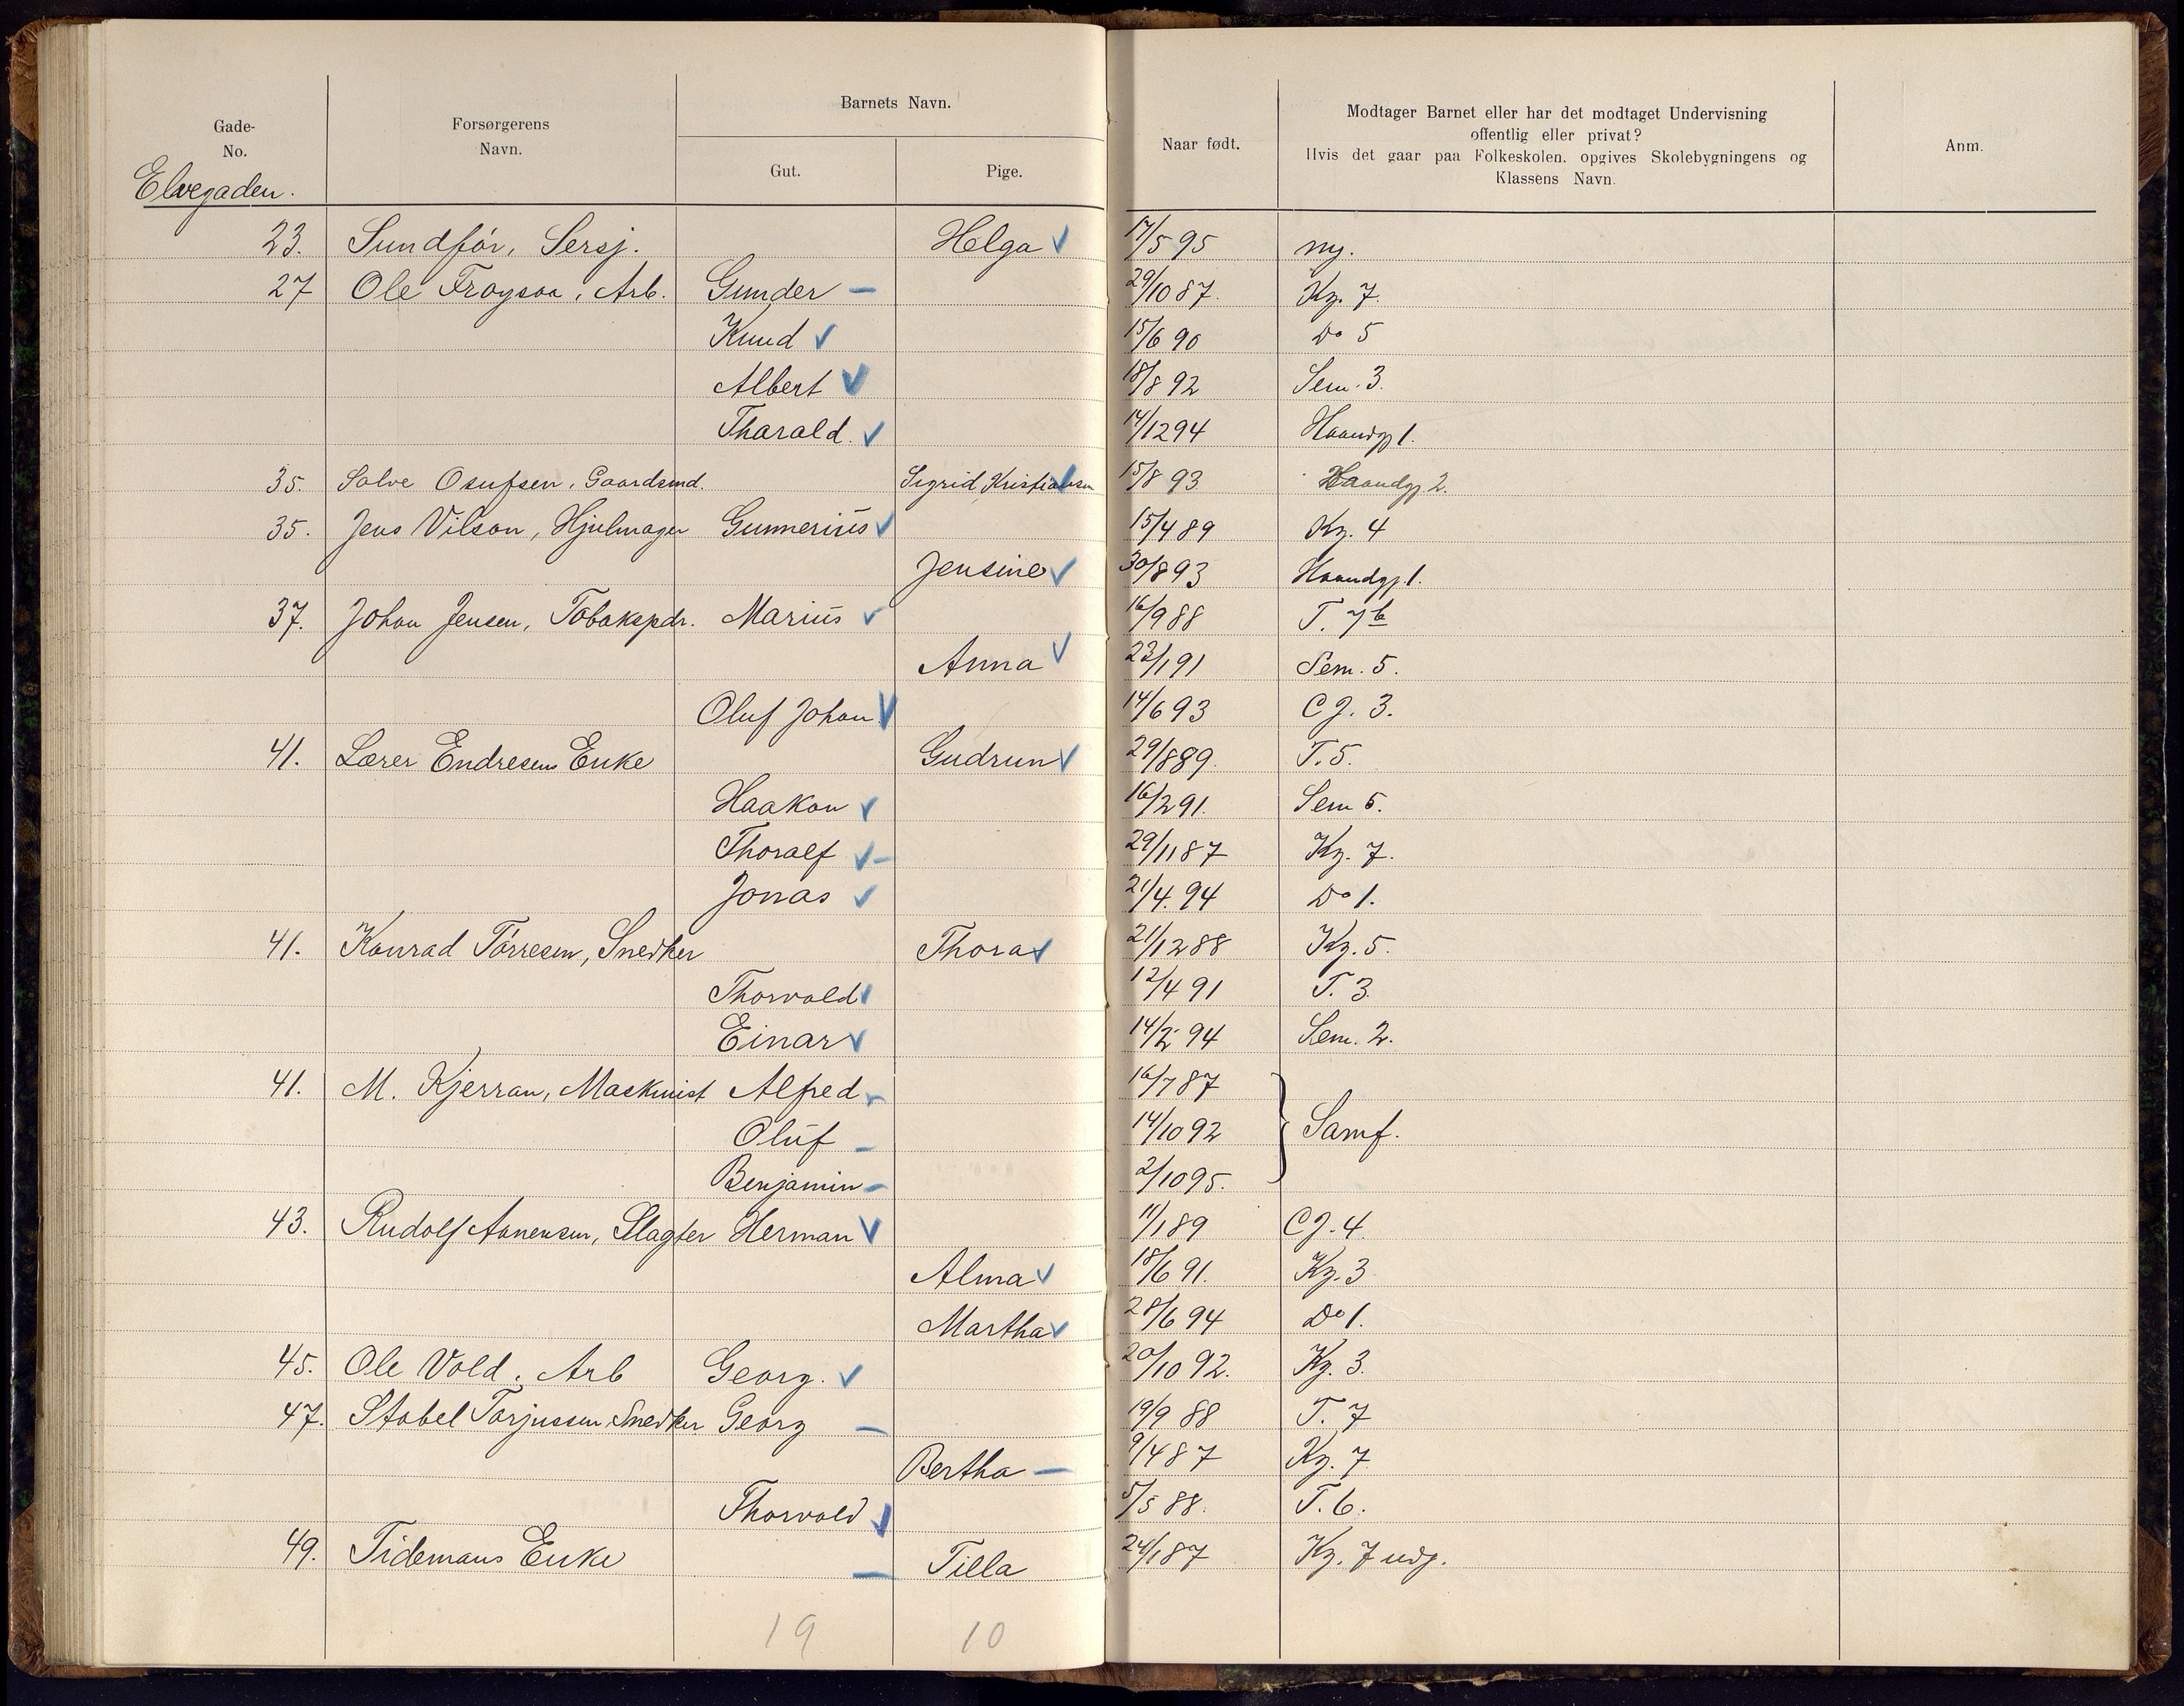 Gade-
No.
Forsørgerens
Navn.
Barnets Navn.
Gut.
Pige.
Naar født.
Modtager Barnet eller har det modtaget Undervisning
offentlig eller privat?
Hvis det gaar paa Folkeskolen, opgives Skolebygningens og
Klassens Navn.
Anm.
Elvegaden.
23. Sundfør, Sersj. Helga 17/5 95 ny.
27 Ole Froysaa, Arb. Gunder 29/10 87. Kg. 7.
Knud 15/6 90 Do 5
Albert 18/8 92 Sem. 3.
Tharald. 14/12 94 Haandgj 1.
35. Salve Osufsen, Gaardsmd. Sigrid Kristiansen 15/8 93 Haandgj. 2.
35. Jens Vilson, Hjulmager Gunnerius 15/4 89 Kg. 4
Jensine 30/8 93 Haandgj. 1.
37. Johan Jensen, Tobakspdr. Marius 16/9 88 T. 7b
Anna 23/1 91 Sem. 5.
Oluf Johan 14/6 93 C J. 3.
41. Lærer Endresens Enke Gudrun 29/8 89. T. 5.
Haakon 16/2 91. Sem 5.
Thoralf 29/11 87 Kg. 7.
Jonas 21/4. 94 Do 1.
41. Konrad Tørresen, Snedker Thora 21/12 88 Kg. 5.
Thorvald 12/4 91 T. 3
Einar 14/2 94 Sem. 2.
41. M. Kjerran, Maskinist Alfred 16/7 87
Oluf 14/10 92 Samf.
Benjamin 2/10 95.
43. Rudolf Aanensen, Slagter Herman 11/1 89 C J. 4.
Alma 18/6 91. Kg. 3
Martha 28/6 94 Do 1.
45. Ole Vold, Arb Georg. 20/10 92. Kg. 3.
47. Stabel Torjussen Snedker Georg 19/9 88 T. 7
Bertha 9/4 87 Kg. 7
Thorvald 5/5 88. T. 6.
49. Tidemans Enke Tilla 24/1 87 Kg. 7 udg.
19 10